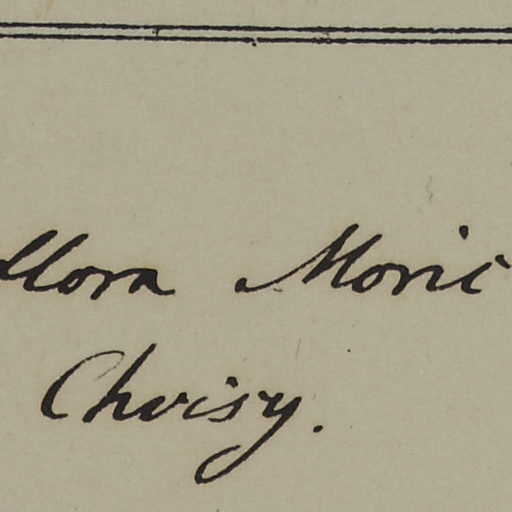 llora Moric
Choisy.